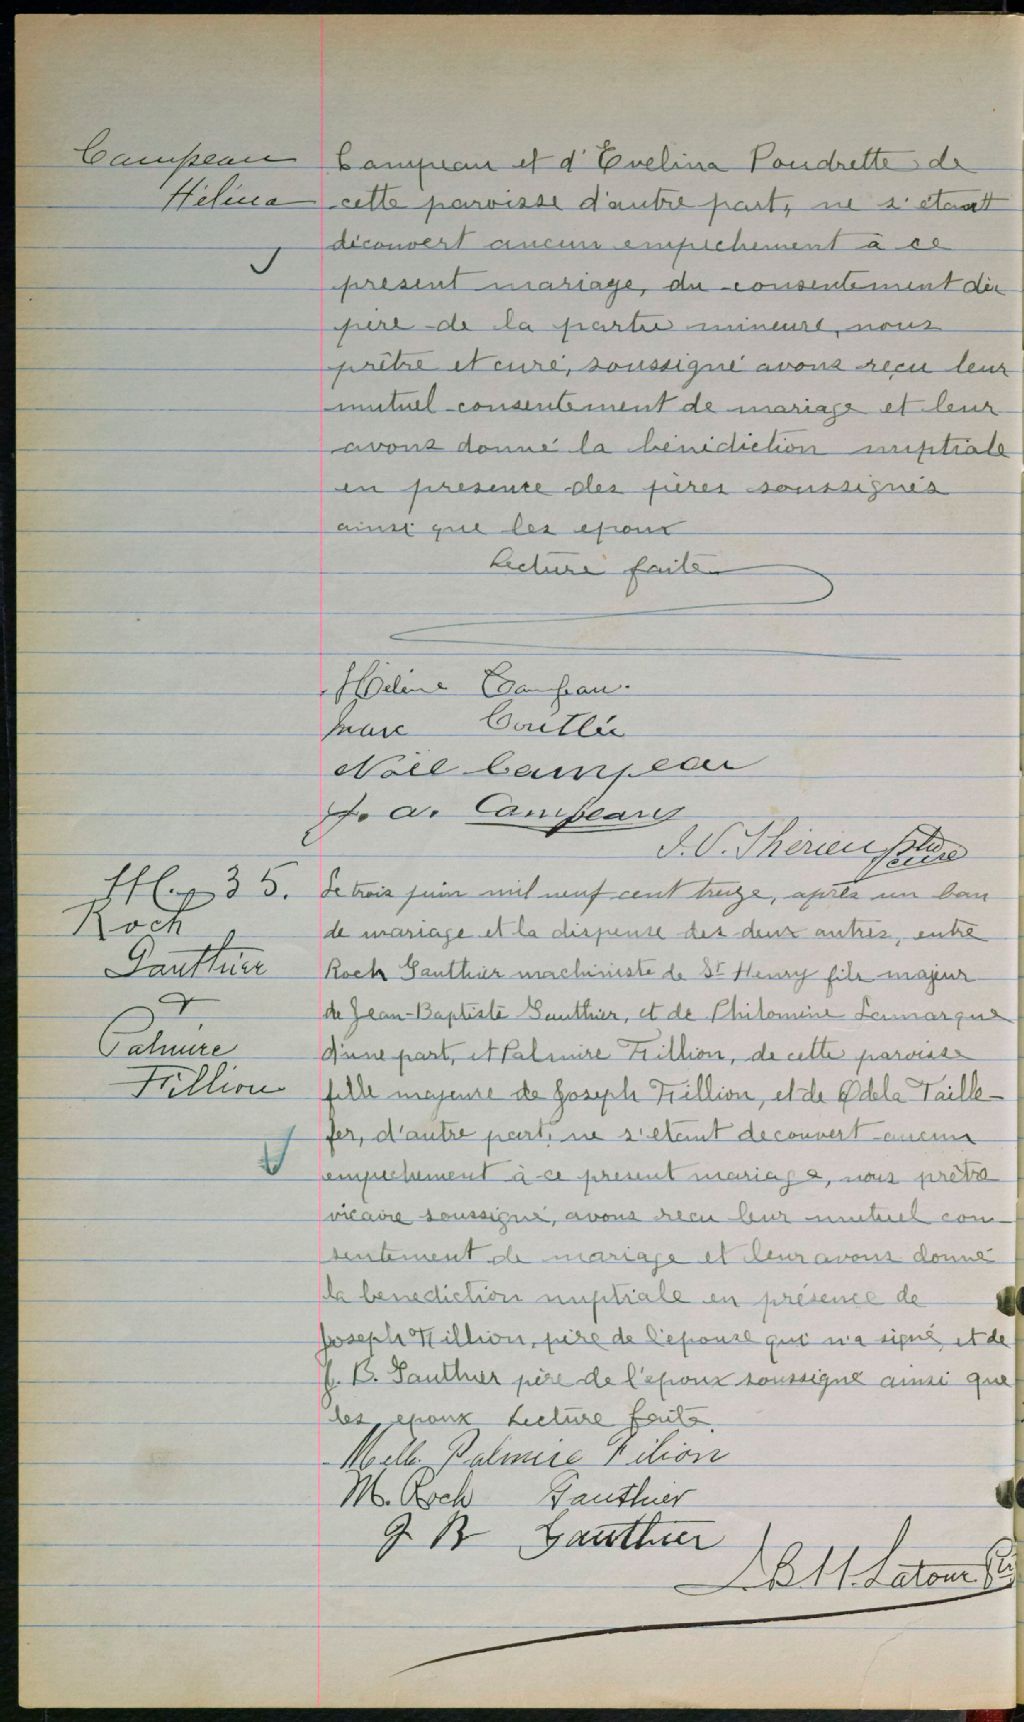 Campeau
Hélèna
Campeau et d'Evelina Poudrette de
cette paroisse d'autre part, ne s'étant
découvert aucun empechement à ce
present mariage, du consentement du
père de la partie mineure, nous
prêtre et curé, soussigné avons reçu leur
mutuel consentement de mariage et leur
avons donné la bénédiction nuptiale
en presence des pères soussignés
ainsi que les epoux
Lecture faite
Hélène Campeau.
Marc Couttée
Noël Campeau
J. A. Campeau
J. V. Thérien ptre curé
M. 35.
Roch
Gauthier
&
Palmire
Fillion
Le trois juin mil neuf cent treize, après un ban
de mariage et la dispense des deux autres, entre
Roch Gauthier machiniste de St Henry fils majeur
de Jean-Baptiste Gauthier, et de Philomine Lamarque
d'une part, et Palmire Fillion, de cette paroisse
fille majeure de Joseph Fillion, et de Odela Taille-
fer, d'autre part, ne s'etant decouvert aucun
empechement à ce present mariage, nous prêtre
vicaire soussigné, avons recu leur mutuel con-
sentement de mariage et leur avons donné
la benediction nuptiale en présence de
Joseph Fillion, père de l'epouse qui n'a signé, et de
J. B. Gauthier père de l'epoux soussigné ainsi que
les epoux Lecture faite
Melle. Palmire Filion
M. Roch Gauthier
J B Gauthier
J. B. H. Latour Ptr